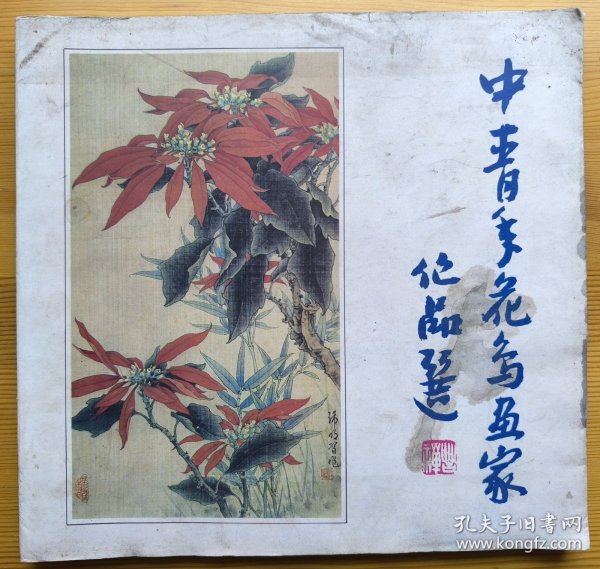 中青年花鸟画家
作品选
孔夫子旧书网
www.kongfz.com